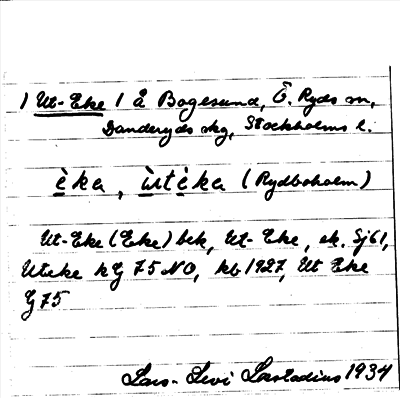 1 Ut-Eke 1 Å Bogesund, Ö. Ryds sn,
Danderyds skg, Stockholms l.
èka, ùtèka (Rydboholm)
Ut-Eke (Eke) bek, Ut-Eke, ek. Sj61,
Uteke hg 75 NO, kb 1927, Ut Eke
G 75
Lars-Levi Læstadius 1934